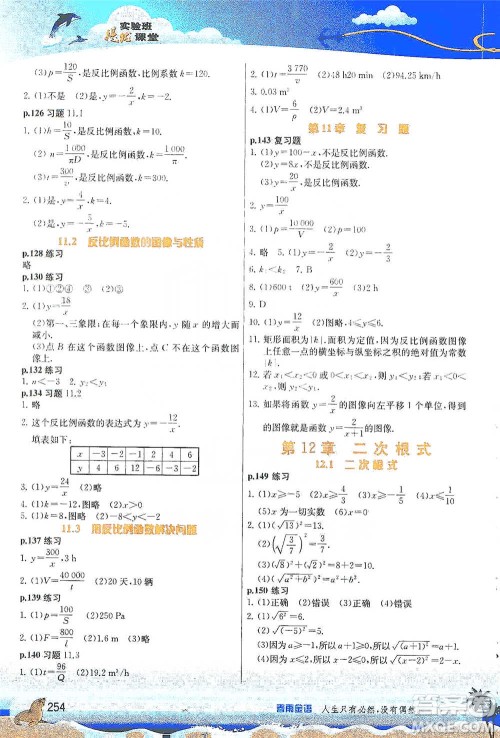 实验班
提优课堂
(3) p=120/S, 是反比例函数, 比例系数 k=120.
2. (1)不是. (2)是, y=-2/x, k=-2.
p.126 习题 11.1
1. (1)h=10/S, 是反比例函数, k=10.
(2)n=1 000/πD, 是反比例函数, k=1 000/π.
(3)m=300/n, 是反比例函数, k=300.
2. (1)是, y=4/x, k=4.
(2)是, y=-5/x, k=-5.
11.2 反比例函数的图像与性质
p.128 练习
略
p.130 练习
1. (1)①④ (2)①②③
2. (1)y=18/x
(2)第一、三象限; 在每一个象限内, y 随 x 的增大而减小.
(3)点 B 在这个函数图像上, 点 C 不在这个函数图像上.
p.132 练习
1. n<-3 2. y₂<y₁
p.134 习题 11.2
1. 略
2. 这个反比例函数的表达式为 y=-12/x.
填表如下:
x -3 -2 -1 1 2 3
y 4 6 12 -12 -6 -4
3. (1)y=24/x (2)略 4. 略
5. (1)k<4 图略 (2)x>0
6. (1)k=8 图略 (2)-8<y<-2
11.3 用反比例函数解决问题
p.137 练习
1. y=300/x, 3 h.
2. (1)V=40 000/t (2)20 天, 10 辆
p.139 练习
1. (1)p=100/S (2)250 Pa
2. (1)F=800/l (2)略
p.140 习题 11.3
1. (1)t=96/Q (2)略
2. (1)t=3 770/v (2)48 h20 min (3)94.25 km/h
3. 0.03 m²
4. (1)V=6/ρ (2)2 m³
第11章 复习题
p.143 复习题
1. (1)y=100-x, 不是反比例函数.
(2)y=8x, 不是反比例函数.
2. y=100/x
3. (1)p=10 000/V (2)略
4. 略 5. y₁<y₂ 6. 略
7. k₁=k₂
8. (1)600 t (2)y=600/x (3)12 天
9. D
10. (1)y=12/x (2)略 (3)4≤y≤6
11. 矩形面积为|k|. 理由:因为反比例函数图像上任意一点的横坐标与纵坐标之积为|k|.
12. 若 x₁<x₂<0 或 0<x₁<x₂, 则 y₂<y₁; 若 x₁<0<x₂, 则 y₁<y₂.
13. 所得到的图像是将 y=2/x 的图像向左平移 1 个单位, 得到的图像就是函数 y=2/(x+1) 的图像.
第12章 二次根式
12.1 二次根式
p.149 练习
1. (1)x≥-5 (2)x≤1/2 (3)x≤0 (4)x≥0
(5)x 为一切实数 (6)x>1
2. (1)(√13)²=13
(2)(√(3/7))²=3/7
(3)(√(a²+b²))²=a²+b²
p.150 练习
1. (1)正确 (2)错误 (3)正确 (4)错误
2. (1)√(2²)=2
(2)√((-5)²)=5
(3)因为 a≥0, 所以 a+1>0, 所以 √((a+1)²)=a+1
(4)因为 x≤1, 所以 x-1≤0, 所以 √((x-1)²)=1-x
254
春雨金语
人生只有必然,没有偶然